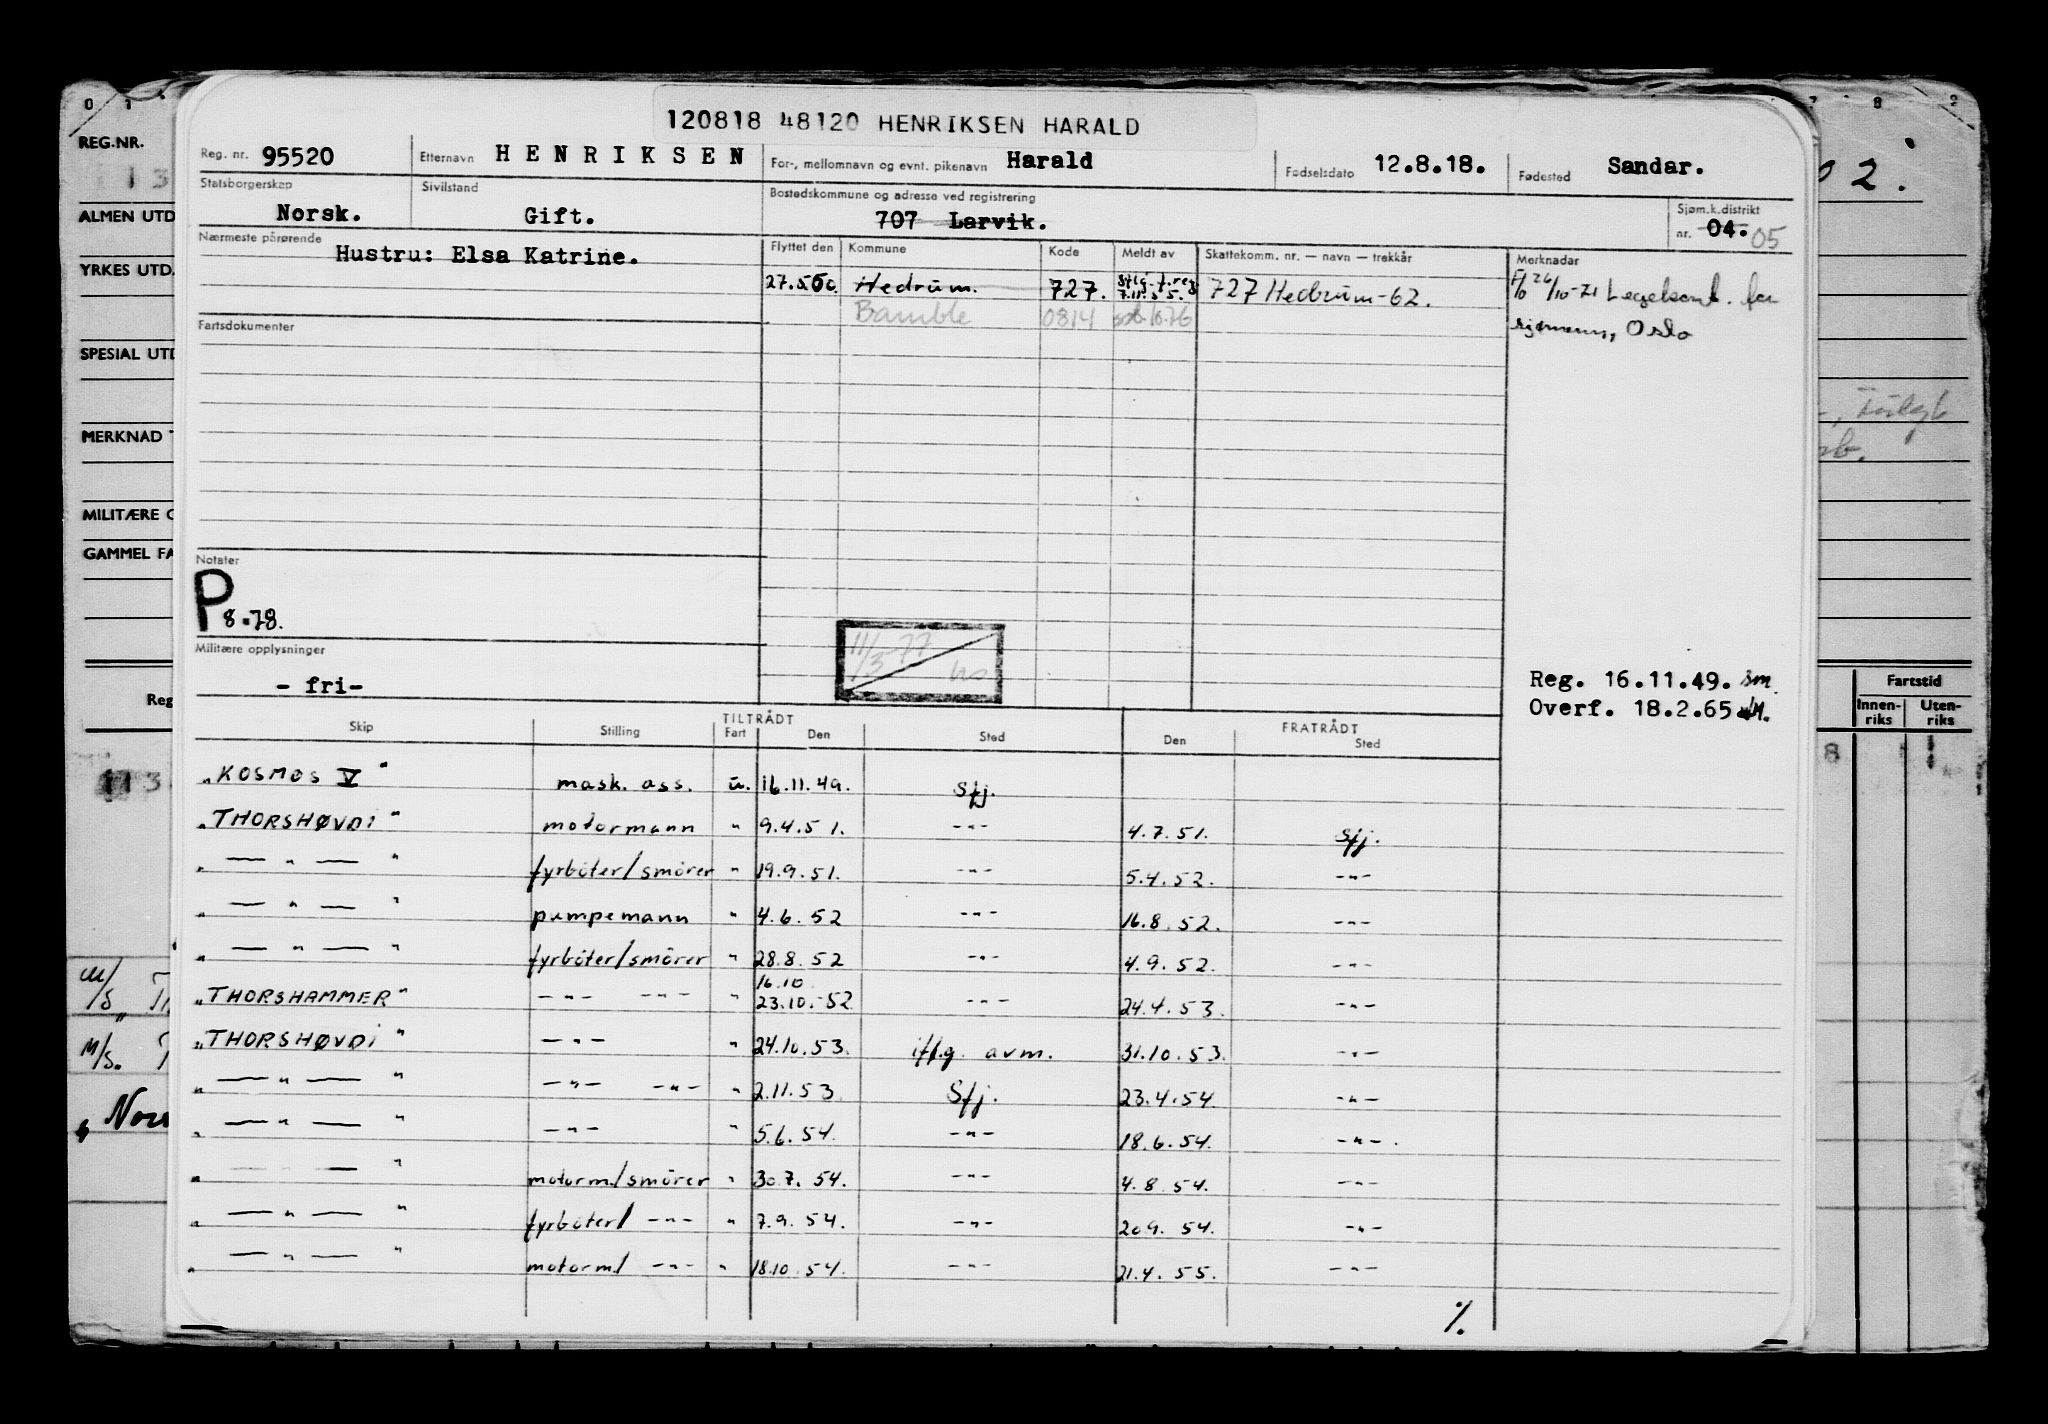 120818 48120 HENRIKSEN HARALD
Reg. nr. 95520 Etternavn HENRIKSEN For-, mellomnavn og evnt. pikenavn Harald Fødselsdato 12.8.18. Fødested Sandar.
Statsborgerskap Norsk. Sivilstand Gift. Bostedskommune og adresse ved registrering 707 Larvik. Sjøm.k.distrikt nr. 04. 05
Nærmeste pårørende Hustru: Elsa Katrine.
Flyttet den Kommune Kode Meldt av Skattekomm. nr. — navn — trekkår Merknader
Hedrum. 727. 7.11.55. 727 Hedrum-62. 26/10-71 Legekont. for
Bamble 0814 10.76 sjømenn, Oslo
Fartsdokumenter
Notater
P 8.78.
11/3-77
Militære opplysninger
- fri-
Reg. 16.11.49. sm.
Overf. 18.2.65
Skip Stilling TILTRÅDT Fart Den Sted FRATRÅDT Den Sted
"KOSMOS V" mask. ass. u. 16.11.49. Sfj.
"THORSHØVDI" motormann " 9.4.51. -"- 4.7.51. Sfj.
" — " — " fyrbøter/smører " 19.9.51. -"- 5.4.52. -"-
" — " — " pumpemann " 4.6.52 -"- 16.8.52. -"-
" — " — " fyrbøter/smører " 28.8.52 -"- 4.9.52. -"-
16.10
"THORSHAMMER" -"- -"- " 23.10.-52 -"- 24.4.53. -"-
"THORSHØVDI" -"- " 24.10.53. iflg. avm. 31.10.53. -"-
" — " — " -"- -"- " 2.11.53 Sfj. 23.4.54. -"-
" — " — " -"- " 5.6.54. -"- 18.6.54. -"-.
" — — — " motorm/smører " 30.7.54. -"- 4.8.54. -"-
" — " — " fyrbøter/ -"- " 7.9.54. -"- 20.9.54. -"-
" — " — " motorm/ -"- " 18.10.54. -"- 21.4.55. -"-
%
0 1
REG.NR.
13
ALMEN UTD
YRKES UTD.
SPESIAL UTD
MERKNAD T
MILITÆRE O
GAMMEL FA
Reg
113
M/S
M/S. T
"Nor
8 2
02.
Fartstid
Innen-riks Uten-riks
8